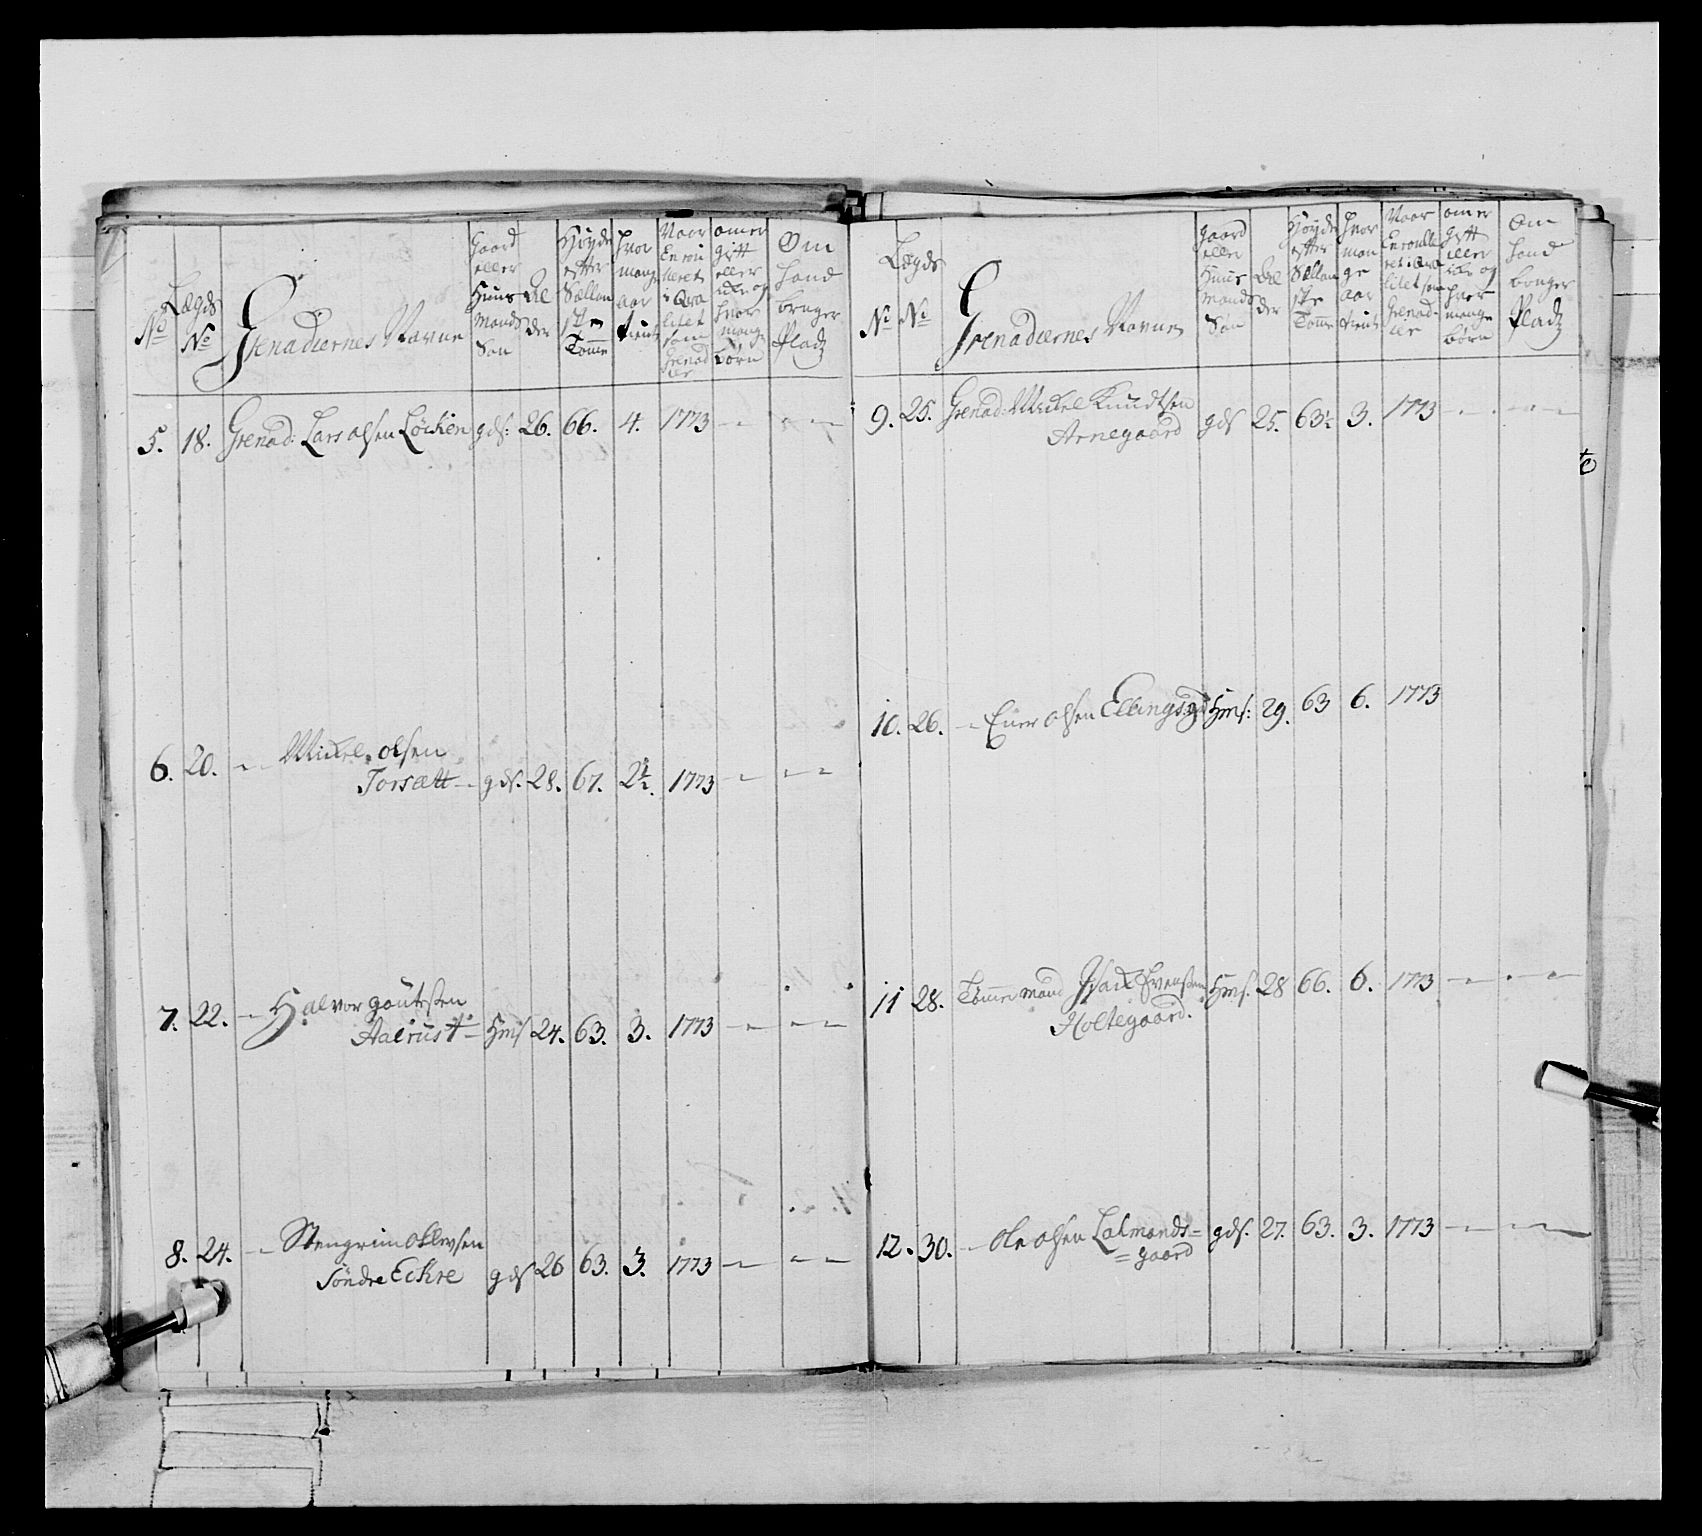 No
Lægds No
Grenadeernes Navne
Gaard eller Huus Mands Søn
Alder
Høyde efter Sællandske Tomme
Hvor mange aar tient
Naar Enroulleret i Qvalitet som Grenadeer
om er gift eller icke og hvor mange børn
Om hand bruger Pladz
5. 18. Grenad: Lars olsen Löcken gds: 26. 66. 4. 1773 — — —
6. 20. — Mickel olsen
Torsætt — gds. 28. 67. 2½. 1773 — — —
7. 22. — Halvor goutesen
Aalrust — Hms 24. 63. 3. 1773 — — —
8. 24. — Stengrim
Söndre Eckre gds 26 63. 3. 1773 — — —
No
Lægds No
Grenadeernes Navne
gaard eller Huus Mands Søn
Alder
Høyde efter Sællandske Tomme
hvor mange aar tient
Naar Enroulleret i Qvalitet som Grenadeer
om er gift eller icke og hver mange børn
Om hand bruger Pladz
9. 25. Grenad: Mickel Knudtsen
Arnegaard gds 25. 63½ 3. 1773 — — —
10. 26. — Ener olsen Ellingsgd Hms: 29. 63 6. 1773
11 28. Tömmermand Isack Svensen Hms. 28 66. 6. 1773 — — —
Holtegaard.
12. 30. — Ole olsen Lakmands= gds. 27. 63. 3. 1773 — —
=gaard